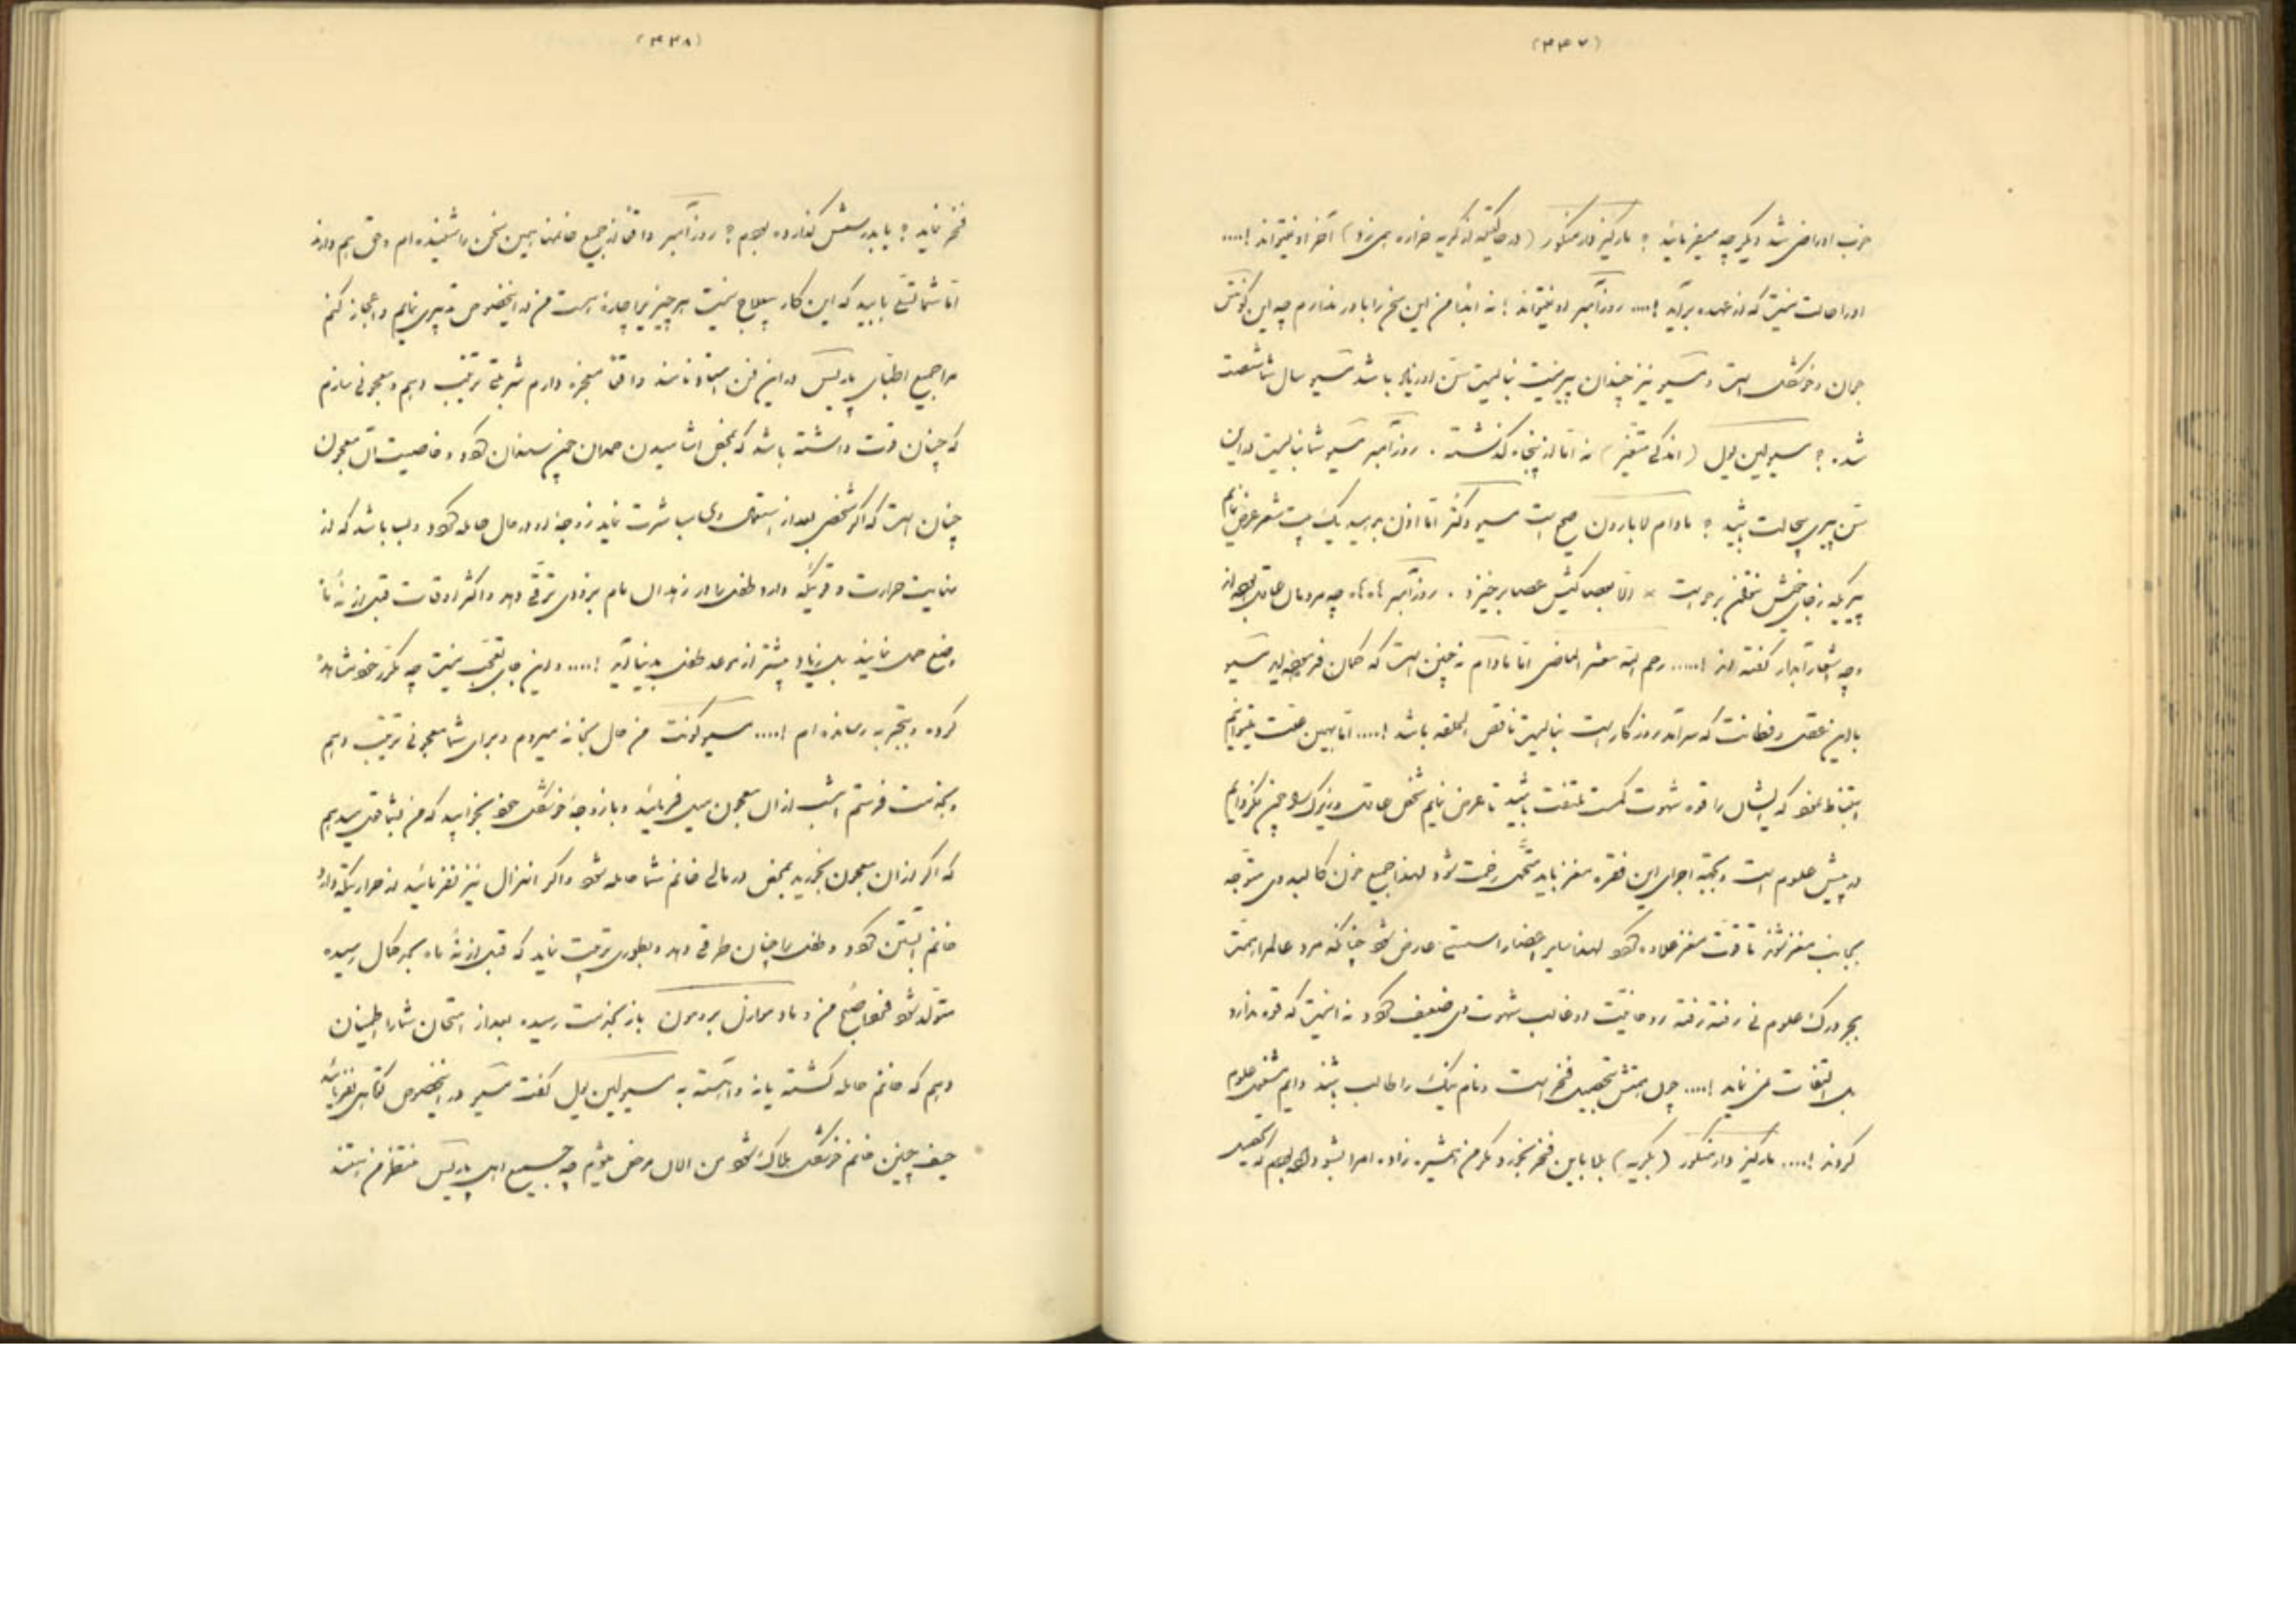 (۴۴۷)
خوب او راضی شد دیگر چه میفرمائید ؟ مارکیز (در حالتیکه از گریه میزد) آخر او نمیتواند !....
او را حالت نیست که از عهده برآید !.... روزآمبر او نمیتواند ! نه ابدا من این سخن را باور ندارم چه این کونتس
جوان و خوشگل است و مسیو نیز چندان پیر نیست نبایست سن او زیاد باشد مسیو سال شما شصت
شده ؟ مسیو (اندکی متغیر) نه اما از پنجاه گذشته . روزآمبر مسیو شما نبایست در این
سن پیری بیحالت باشید ؟ مادام لابارون صحیح است مسیو دکتر اما اذن بدهید یک بیت شعر عرض نمایم
پیریکه ز جای خویش نتواند برخاست * الا بعصا کیش عصا برخیزد . روزآمبر ها ها چه مردمان عاقل بوده اند
و چه اشعار آبدار گفته اند !..... رحم الله معشر الماضین اما مادام نه چنین است که گمان فرموده اید مسیو
با این عقل و فطانت که سرآمد روزگار است نبایست ناقص الخلقه باشد !.... اما بهمین علت میتوانیم
استنباط نمود که ایشان را قوه شهوت کمست ملتفت باشید تا عرض نمایم شخص عاقل و زیرک
در پیش علوم است و بجهة اجرای این فقره مغز باید متحمل زحمت شود لهذا جمیع خون کالبد وی متوجه
بجانب مغز شوند تا قوت مغز علاوه شود لهذا سایر اعضا را سستی عارض شود چنانکه مرد عالم را همت
بجز درک علوم نی رفته رفته روحانیت او غالب شهوت وی ضعیف شود نه اینست که قوه ندارد
بل التفات نمی نماید !.... چون همتش تحصیل فخر است و نام نیک را طالب باشد دایم مشغول علوم
گردند !.... مارکیز (بگریه) بلا باین فخر بخورد مگر من همشیره زاده امرا نبودم که تحصیل
(۴۴۸)
فخر نماید ؟ یا بدرستش گذارده بودم ؟ روزآمبر واقعا از جمیع خانمها همین سخن را شنیده ام و حق هم دارند
اما شما تسلی یابید که این کار بیعلاج نیست هر چیز را چاره است من در اینخصوص تدبیری نمایم و اعجاز کنم
مرا جمیع اطبای پاریس در این فن استاد نامند واقعا معجزه دارم شربتی ترتیب دهم و معجونی سازم
که چنان قوت داشته باشد که بمحض آشامیدن حمدان چون سندان شود و خاصیت آن معجون
چنان است که اگر شخصی بعد از استعمال وی مباشرت نماید زوجه او در حال حامله شود و بسا باشد که از
غایت حرارت و قوتیکه دارد طفل را در زهدان مام بزودی ترقی دهد و اکثر اوقات قبل از نه ماه
وضع حمل نمایند بل زیاد پیشتر از موعد طفل بدنیا آید !.... و این جای تعجب نیست چه مکرر خود مشاهده
کرده و بتجربه رسانده ام !.... مسیو کونت من حال بخانه میروم و برای شما معجونی ترتیب دهم
و بخدمت فرستم امشب از آن معجون میل فرمائید و با زوجه خوشگل خود بخوابید که من بشما قول میدهم
که اگر از آن معجون بخورید بمحض درمالی خانم شما حامله شود و اگر انزال نیز نفرمائید از حرارتیکه دارد
خانم آبستن شود و طفل را چنان طرقی دهد و بطوری تربیت نماید که قبل از نه ماه بحد کمال رسیده
متولد شود من و مادموازل باز بخدمت رسیده بعد از امتحان شما را اطمینان
دهم که خانم حامله گشته یا نه و آهسته به مسیو گفت مسیو در اینخصوص کوتاهی نفرمائید
حیف چنین خانم خوشگل هلاک شود من الان مرخص میشوم چه جمیع اهل پاریس منتظر من هستند